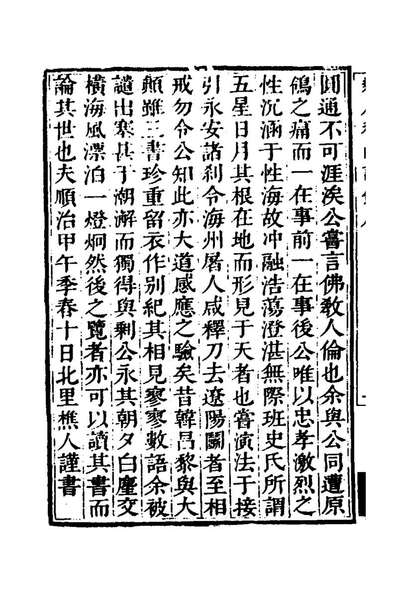 圓通不可涯涘公嘗言佛教人倫也余與公同遭原
鴒之痛而一在事前一在事後公唯以忠孝激烈之
性沉涵于性海故冲融浩蕩澄湛無際班史氏所謂
五星日月其根在地而形見于天者也嘗演法于接
引永安諸刹令海州屠人咸釋刀去遼陽鬬者至相
戒勿令公知此亦大道感應之驗矣昔韓昌黎與大
顛雖三書珍重留衣作別紀其相見寥寥數語余被
譴出塞甚于潮澥而獨得與剩公永其朝夕白麈交
橫海風漂泊一燈炯然後之覽者亦可以讀其書而
論其世也夫順治甲午季春十日北里樵人謹書